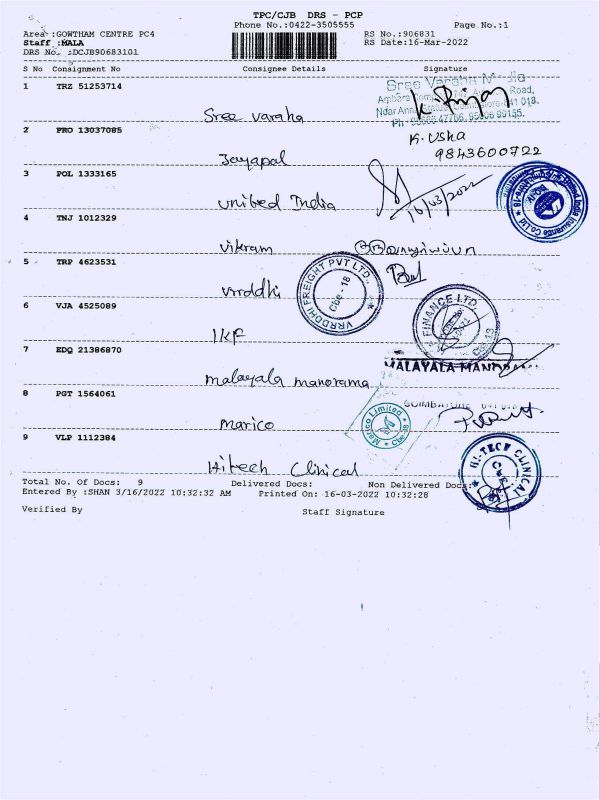 TPC/CJB DRS - PCP
Phone No.:0422-3505555 Page No.:1
Area :GOWTHAM CENTRE PC4 RS No.:906831
Staff :MALA RS Date:16-Mar-2022
DRS No. :DCJB90683101
S No Consignment No Consignee Details Signature
1 TRZ 51253714
Sree Varaha
Sree Varaha
Road,
641 018.
2 PRO 13037085
Jeyapal
K. Usha
9843600722
3 POL 1333165
United India
16/03/2022
India Insurance Co Ltd
4 TNJ 1012329
Vikram
5 TRP 4623531
Vrrddhi
VRRDDHI FREIGHT PVT LTD.,
Cbe - 18
6 VJA 4525089
IKF
FINANCE LTD
7 EDQ 21386870
Malayala Manorama
MALAYALA
8 PGT 1564061
Marico
Marico Limited
Cbe-18
COIMBATORE
9 VLP 1112384
Hitech Clinical
HI-TECH CLINICAL
Total No. Of Docs: 9 Delivered Docs: Non Delivered Docs:
Entered By :SHAN 3/16/2022 10:32:32 AM Printed On: 16-03-2022 10:32:28
Verified By Staff Signature